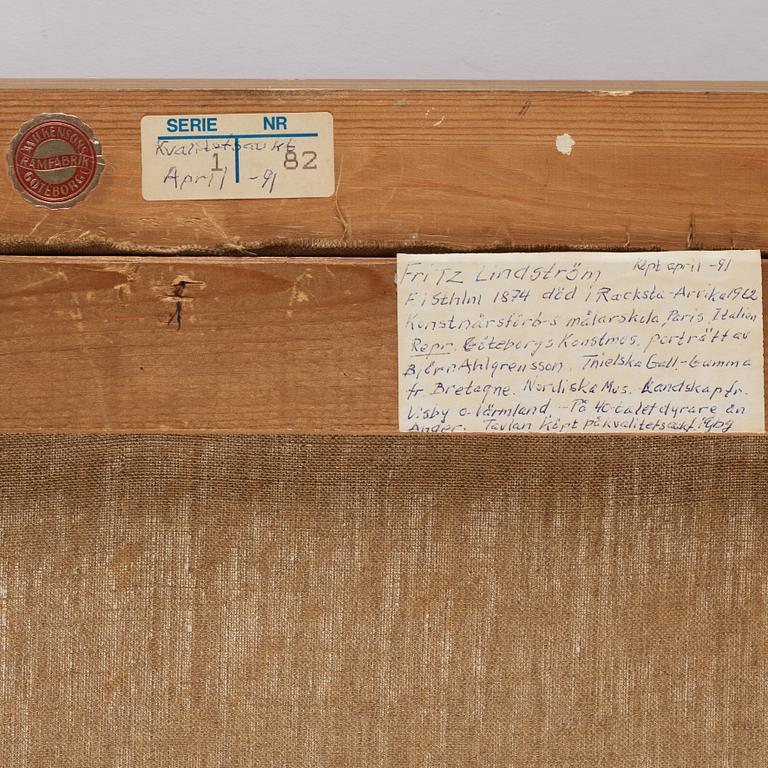 WILKENSONS
RAMFABRIK
GÖTEBORG
SERIE NR
Kvalitetsaukt
1 82
April -91
Fritz Lindström Köpt april -91
F i Sthlm 1874 död i Racksta-Arvika 1962
Konstnärsförb-s målarskola, Paris, Italien
Repr. Göteborgs Konstmus. porträtt av
Björn Ahlgrensson. Thielska Gall.-Gumma
fr. Bretagne. Nordiska Mus.-Landskap fr.
Visby o. Värmland. -På 40-talet dyrare än
Ander. Tavlan köpt på kvalitetsaukt.